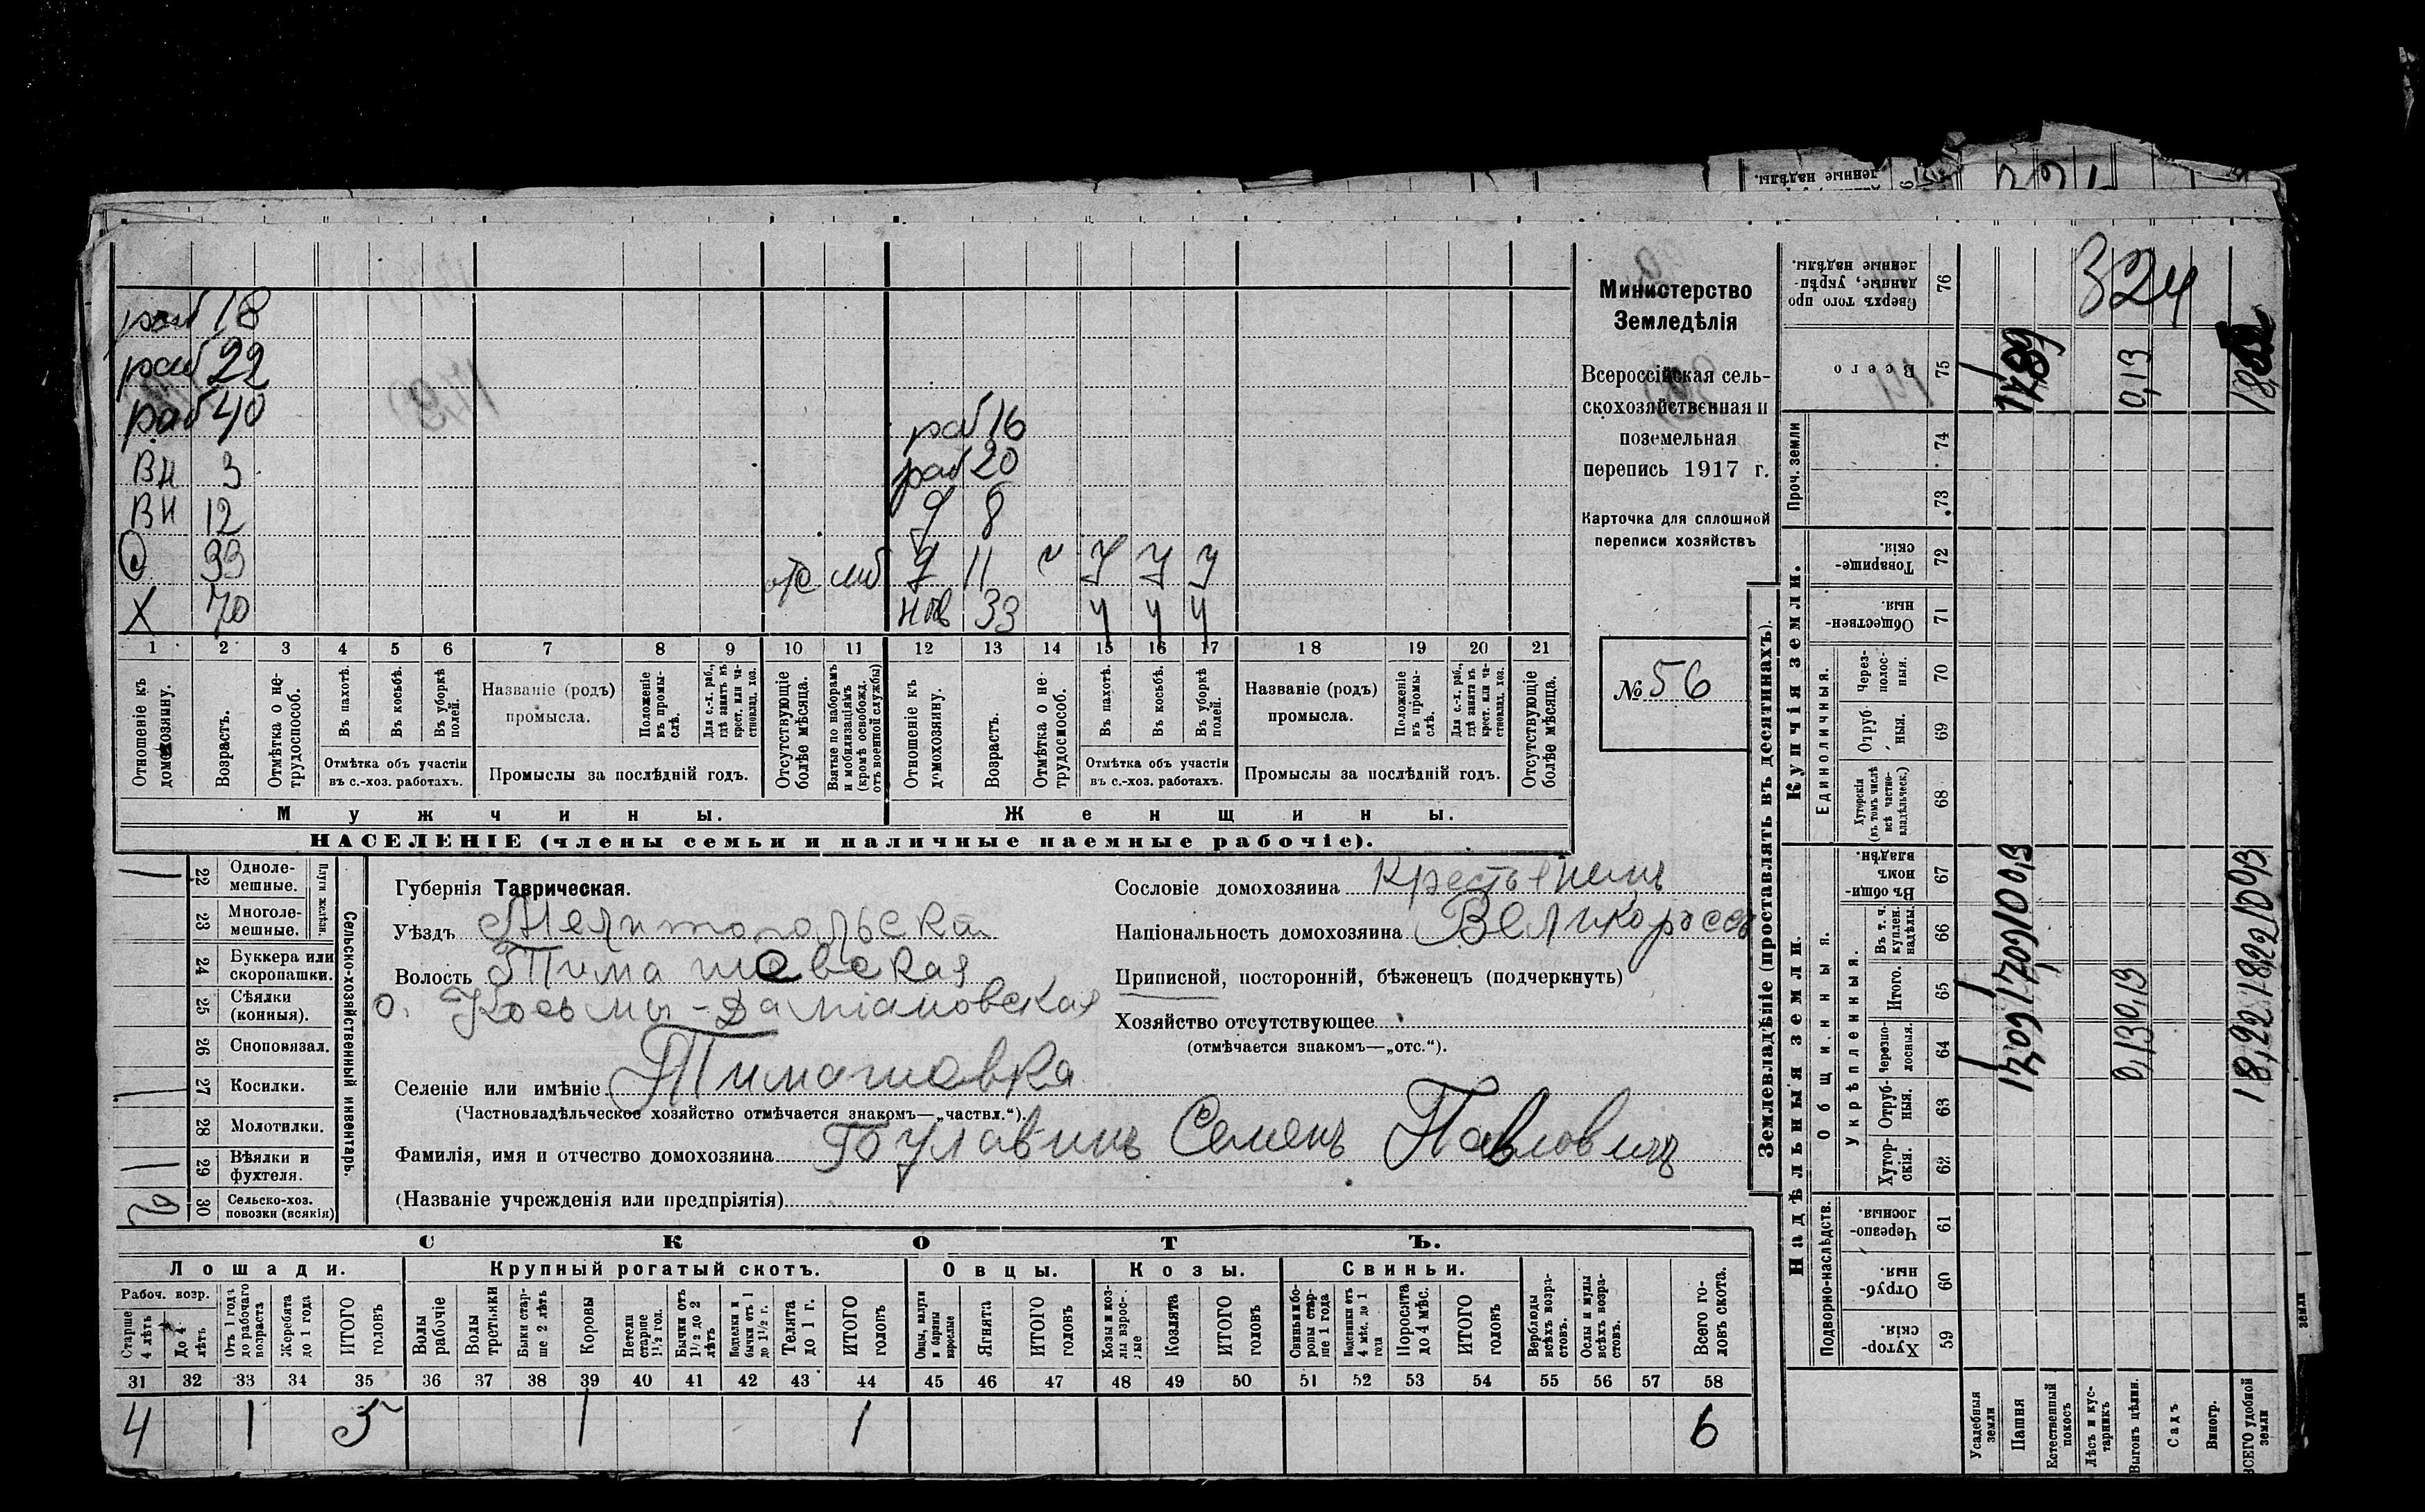 раб 18
раб 22
раб 40 раб 16
вн 3 раб 20
вн 12 д 8
с 33 отс моб д 11 ч у у у
х 70 нев 33 ч ч ч
1 2 3 4 5 6 7 8 9 10 11 12 13 14 15 16 17 18 19 20 21
Отношеніе къ домохозяину.
Возрастъ.
Отмѣтка о не-трудоспособ.
Въ пахотѣ.
Въ косьбѣ.
Въ уборкѣ полей.
Отмѣтка объ участіи въ с.-хоз. работахъ.
Названіе (родъ) промысла.
Положеніе въ промы-слѣ.
Для с.-х. раб., гдѣ занятъ въ крест. или ча-стновлад. хоз.
Промыслы за послѣдній годъ.
Отсутствующіе болѣе мѣсяца.
Взятые по наборамъ и мобилизаціямъ (кромѣ освобожд. отъ военной службы)
Отношеніе къ домохозяину.
Возрастъ.
Отмѣтка о не-трудоспособ.
Въ пахотѣ.
Въ косьбѣ.
Въ уборкѣ полей.
Отмѣтка объ участіи въ с.-хоз. работахъ.
Названіе (родъ) промысла.
Положеніе въ промы-слѣ.
Для с.-х. раб., гдѣ занята въ крест. или ча-стновлад. хоз.
Промыслы за послѣдній годъ.
Отсутствующіе болѣе мѣсяца.
Мужчины. Женщины.
НАСЕЛЕНІЕ (члены семьи и наличные наемные рабочіе).
Министерство
Земледѣлія
Всероссійская сель-
скохозяйственная и
поземельная
перепись 1917 г.
Карточка для сплошной
переписи хозяйствъ
№ 56
1 22 Одноле-мешные.
23 Многоле-мешные.
Плуги желѣзн.
24 Буккера или скоропашки.
25 Сѣялки (конныя).
26 Сноповязал.
1 27 Косилки.
28 Молотилки.
1 29 Вѣялки и фухтеля.
2 30 Сельско-хоз. повозки (всякія)
Сельско-хозяйственный инвентарь.
Губернія Таврическая.
Уѣздъ Мелитопольскій
Волость Тимашевская
о. Косьмы-Даміановская
Селеніе или имѣніе Тимашовка
(Частновладѣльческое хозяйство отмѣчается знакомъ—„частвл.“).
Фамилія, имя и отчество домохозяина Булавинъ Семенъ Павловичъ
(Названіе учрежденія или предпріятія)
Сословіе домохозяина Крестьянинъ
Національность домохозяина Великороссъ
Приписной, посторонній, бѣженецъ (подчеркнуть)
Хозяйство отсутствующее
(отмѣчается знакомъ—„отс.“).
СКОТЪ.
Лошади. Крупный рогатый скотъ. Овцы. Козы. Свиньи.
Рабоч. возр.
Старше 4 лѣтъ
До 4 лѣтъ
Отъ 1 года до рабочаго возраста
Жеребята до 1 года
ИТОГО головъ
Волы рабочіе
Волы третьяки
Быки стар-ше 2 лѣтъ
Коровы
Нетели старше 1½ год.
Бычки отъ 1½ до 2 лѣтъ
Подтелки и бычки отъ 1 до 1½ г.
Телята до 1 г.
ИТОГО головъ
Овцы, валухи и бараны взрослые
Ягнята
ИТОГО головъ
Козы и коз-лы взрос-лые
Козлята
ИТОГО головъ
Свиньи и бо-ровы стар-ше 1 года
Подсвинки отъ 4 мѣс. до 1 года
Поросята до 4 мѣс.
ИТОГО головъ
Верблюды всѣхъ возра-стовъ.
Ослы и мулы всѣхъ возра-стовъ.
Всего го-ловъ скота.
31 32 33 34 35 36 37 38 39 40 41 42 43 44 45 46 47 48 49 50 51 52 53 54 55 56 57 58
4 1 5 1 1 6
Землевладѣніе (проставлять въ десятинахъ).
324
Сверхъ того про-данные, укрѣп-ленные надѣлы. 76
Всего 75 0,13
Проч. земли 74 73
Купчія земли.
Товарище-скія. 72
Обществен-ныя. 71
Единоличныя.
Через-полос-ныя. 70
Отруб-ныя. 69
Хуторскія (въ томъ числѣ всѣ частно-владѣльческ.) 68
Надѣльныя земли.
Общинныя.
Въ общи-номъ владѣн. 67
Укрѣпленныя.
Въ т. ч. куплен. надѣлы. 66
Итого. 65 0,13
Черезпо-лосныя. 64 0,13 18,22
Отруб-ныя. 63
Хутор-скія. 62
Подворно-наслѣдств.
Черезпо-лосныя 61
Отруб-ныя 60
Хутор-скія. 59
Усадебныя земли
Пашня
Естественный покосъ
Лѣсъ и кус-тарникъ
Выгонъ цѣлин.
Садъ
Виногр.
ВСЕГО удобной земли